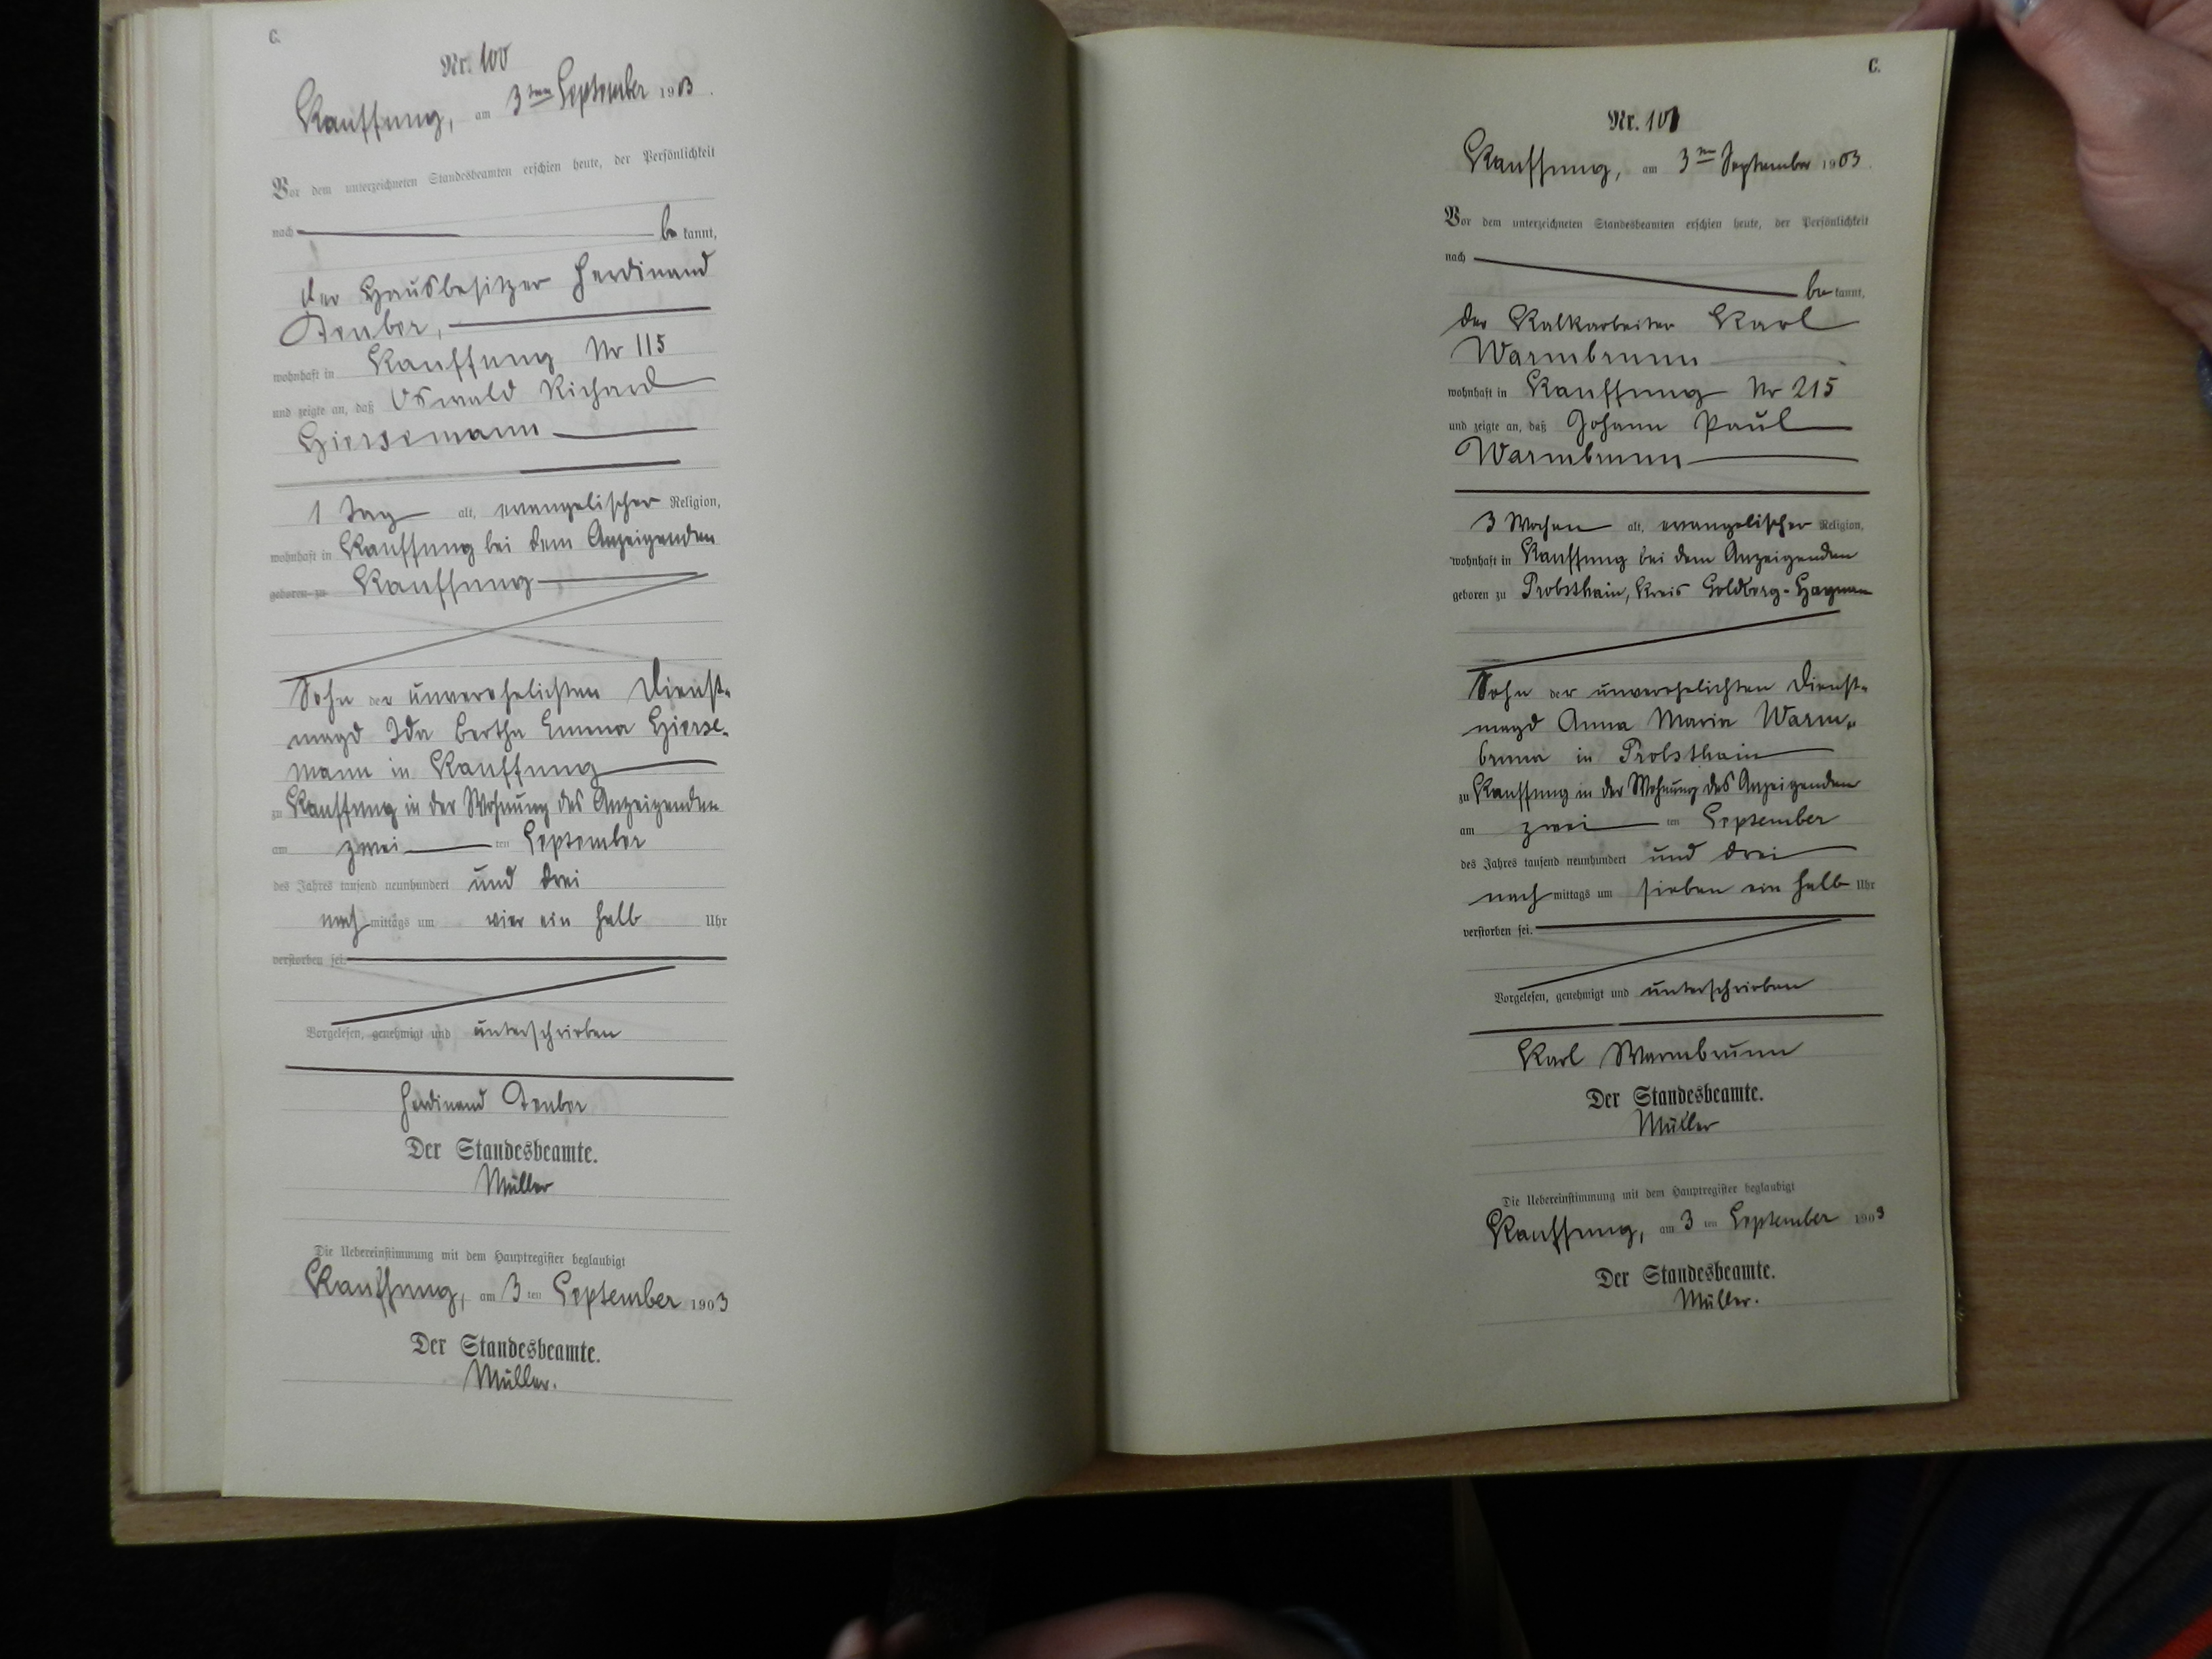 C.
Nr. 100
Kauffung, am 3ten September 1903.
Vor dem unterzeichneten Standesbeamten erschien heute, der Persönlichkeit
nach be kannt,
der Hausbesitzer Ferdinand
Teuber,
wohnhaft in Kauffung Nr 115
und zeigte an, daß Oswald Richard
Hiersemann
1 Tag alt, evangelischer Religion,
wohnhaft in Kauffung bei dem Anzeigenden
geboren zu Kauffung
Sohn der unverehelichten Dienst-
magd Ida Bertha Emma Hierse-
mann in Kauffung
zu Kauffung in der Wohnung des Anzeigenden
am zwei ten September
des Jahres tausend neunhundert und drei
nach mittags um vier ein halb Uhr
verstorben sei.
Vorgelesen, genehmigt und unterschrieben
Ferdinand Teuber
Der Standesbeamte.
Müller
Die Uebereinstimmung mit dem Hauptregister beglaubigt
Kauffung, am 3 ten September 1903
Der Standesbeamte.
Müller.
C.
Nr. 101
Kauffung, am 3ten September 1903.
Vor dem unterzeichneten Standesbeamten erschien heute, der Persönlichkeit
nach be kannt,
der Kalkarbeiter Karl
Warmbrunn
wohnhaft in Kauffung Nr 215
und zeigte an, daß Johann Paul
Warmbrunn
3 Wochen alt, evangelischer Religion,
wohnhaft in Kauffung bei dem Anzeigenden
geboren zu Probsthain, Kreis Goldberg-Haynau
Sohn der unverehelichten Dienst-
magd Anna Maria Warm-
brunn in Probsthain
zu Kauffung in der Wohnung des Anzeigenden
am zwei ten September
des Jahres tausend neunhundert und drei
nach mittags um sieben ein halb Uhr
verstorben sei.
Vorgelesen, genehmigt und unterschrieben
Karl Warmbrunn
Der Standesbeamte.
Müller
Die Uebereinstimmung mit dem Hauptregister beglaubigt
Kauffung, am 3 ten September 1903
Der Standesbeamte.
Müller.